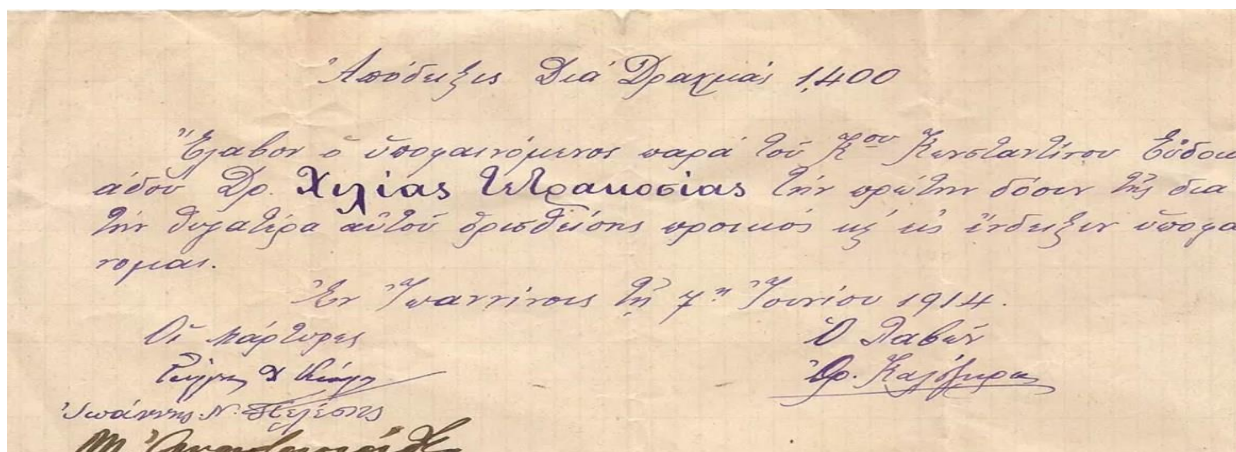 Ἀπόδειξις Διά Δραχμάς 1,400
Ἔλαβον ὁ ὑποφαινόμενος παρά τοῦ Κου Κωνσταντίνου Εὐδοκ
άδου Δρ. Χιλίας Τετρακοσίας τήν πρώτην δόσιν τῆς διά
τήν θυγατέρα αὐτοῦ ὁρισθείσης προικός κ εἰς ἔνδειξιν ὑποφαί
νομαι.
Ἐν Ἰωαννίνοις τῇ 7ῃ Ἰουνίου 1914.
Οἱ Μάρτυρες
Ὁ Λαβών
Ἰωάννης Ν.